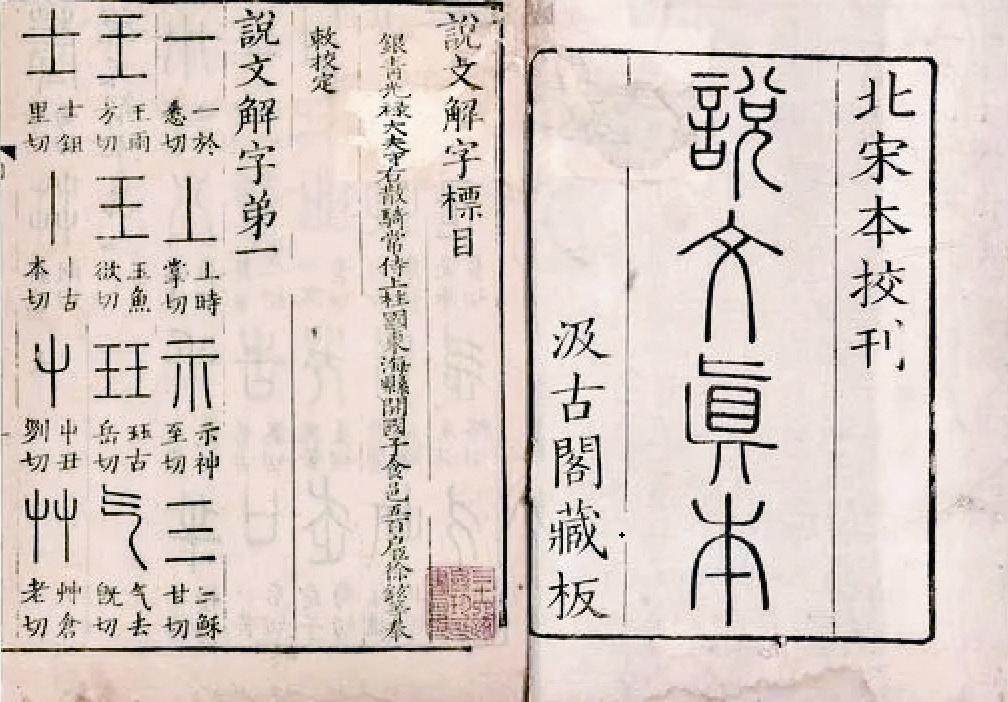 北宋本校刊
說文眞本
汲古閣藏板
說文解字標目
銀青光祿大夫守右散騎常侍上柱國東海縣開國子食邑五百戶臣徐鉉等奉
敕校定
說文解字弟一
一 一於悉切 丄 上時掌切 示 示神至切 三 三蘇甘切
王 王雨方切 王 玉魚欲切 玨 玨古岳切 气 气去旣切
士 士鉏里切 丨 丨古本切 屮 屮丑劉切 艸 艸倉老切